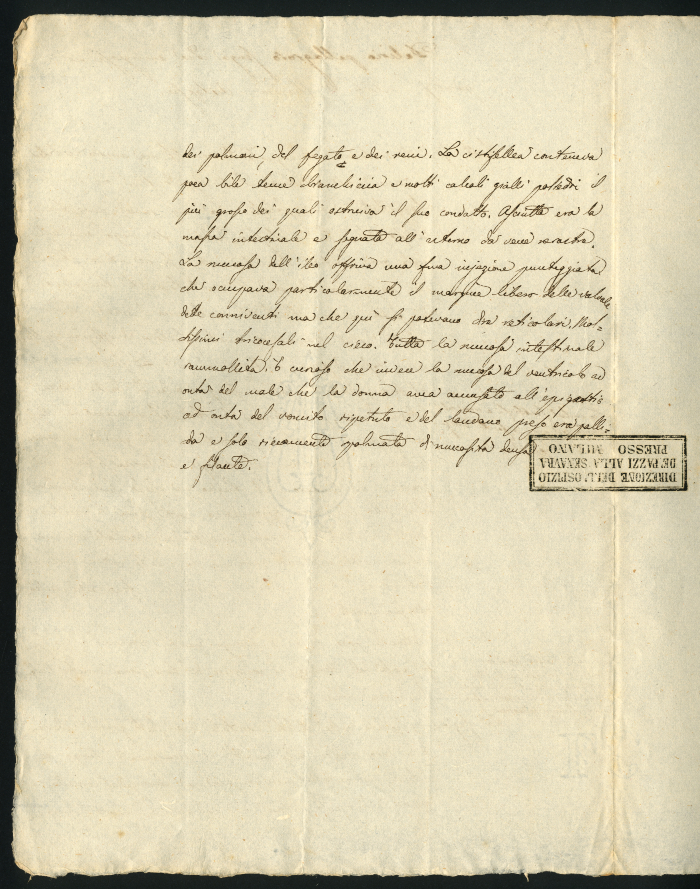 dei polmoni, del fegato e dei reni. La cistifellea conteneva
poca bile tenue bianchiccia e molti calcoli gialli poliedri il
più grosso dei quali ostruiva il suo condotto. Assutta era la
massa intestinale e segnata all'esterno da vene nerastre.
La mucosa dell'ileo offriva una fina injezione punteggiata
che occupava particolarmente il margine libero delle valvole
dette conniventi ma che qui si potevano dire reticolari. Mol-
tissimi tricocefali nel cieco. Tutta la mucosa intestinale
rammollita. È curioso che invece la mucosa del ventricolo ad
onta del male che la donna avea accusato all'epigastrio
ad onta del vomito ripetuto e del laudano preso era palli-
da e solo riccamente spalmata di mucosità densa
e filante.
DIREZIONE DELL'OSPIZIO
DE' PAZZI ALLA SENAVRA
PRESSO MILANO